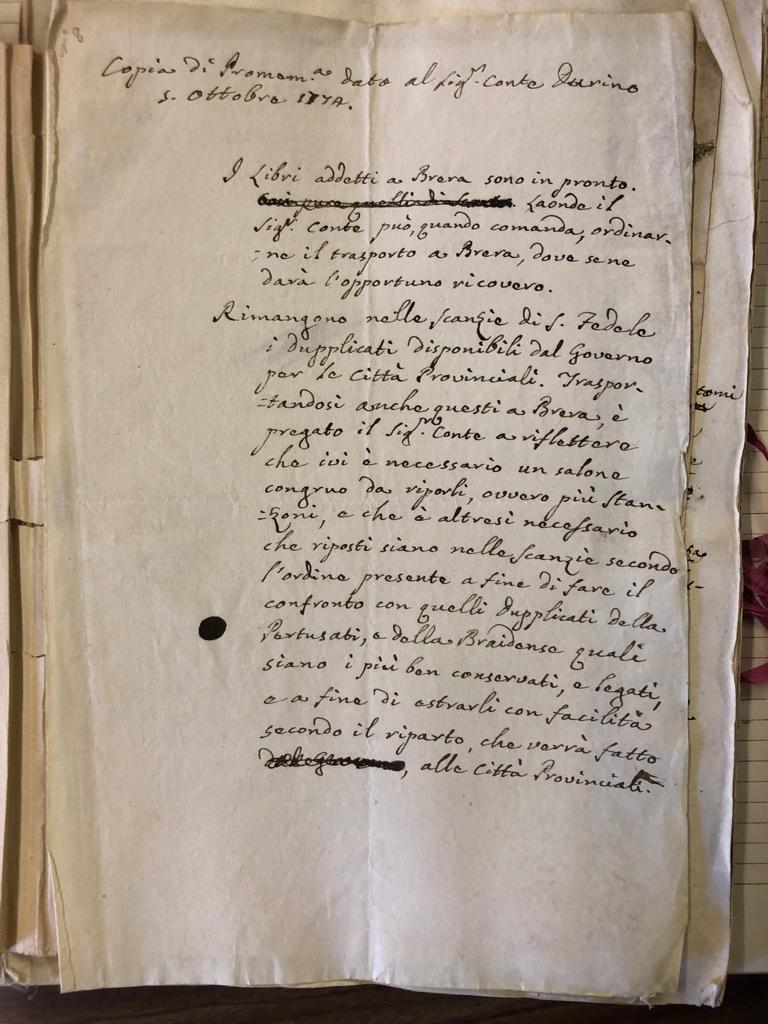 N. 8
Copia di Promem.a dato al Sig.r Conte Durino
5. Ottobre 1774.
I Libri addetti a Brera sono in pronto.
Così pure quelli di Laonde il
Sig.r Conte può, quando comanda, ordinar-
=ne il trasporto a Brera, dove se ne
darà l'opportuno ricovero.
Rimangono nelle scanzie di S. Fedele
i dupplicati disponibili dal Governo
per le Città Provinciali. Traspor-
=tandosi anche questi a Brera, è
pregato il Sig.r Conte a riflettere
che ivi è necessario un salone
congruo da riporli, ovvero più stan-
=zoni, e che è altresì necessario
che riposti siano nelle scanzie secondo
l'ordine presente a fine di fare il
confronto con quelli dupplicati della
Pertusati, e della Braidense quali
siano i più ben conservati, e legati,
e a fine di estrarli con facilità
secondo il riparto, che verrà fatto
, alle Città Provinciali.
tomi